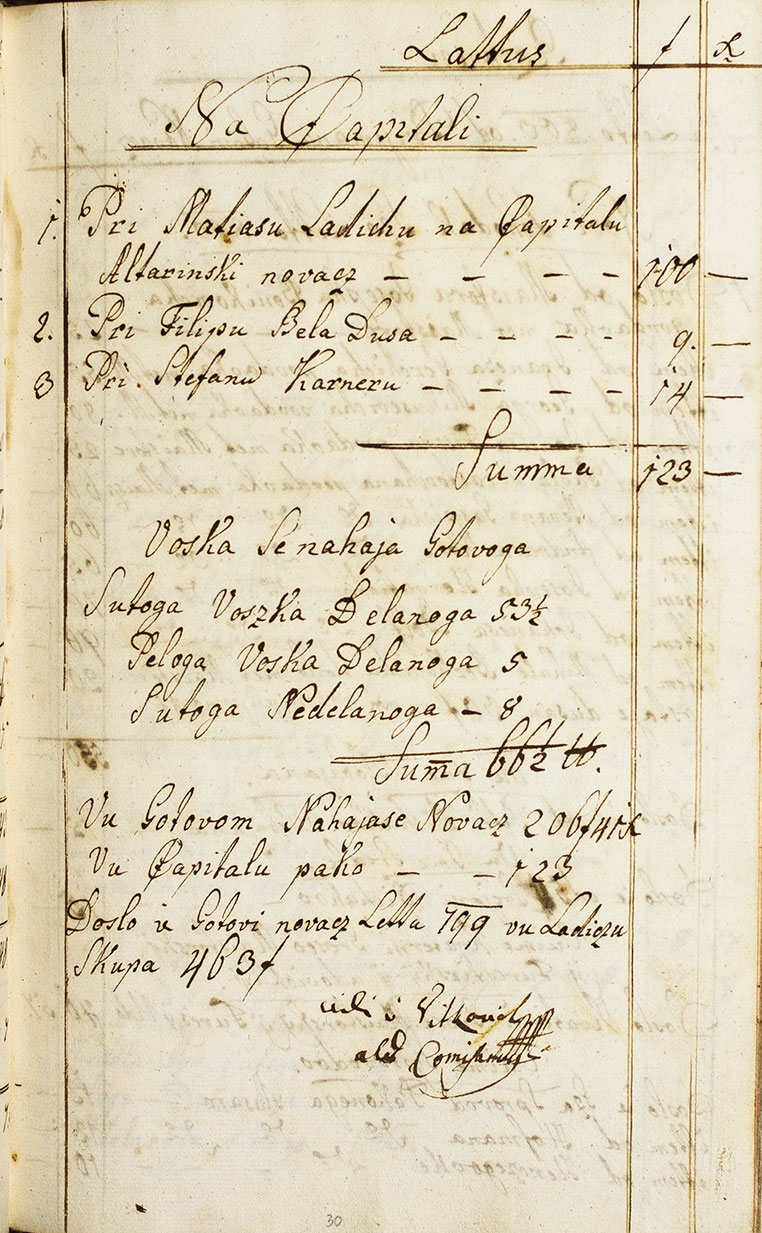 Lattus f x
Na Capitali
1. Pri Matiasu Ladichu na Capitalu
Altarinski novacz - - - - 100 —
2. Pri Filipu Bela Dusa - - - - 9. —
3 Pri Stefanu Karneru - - - - 14 —
Summa 123 —
Voska Se nahaja Gotovoga
Sutoga Voszka Delanoga 53½
Peloga Voska Delanoga 5
Sutoga Nedelanoga - 8
Suma 66½ ℔.
Vu Gotovom Nahajase Novacz 206f 41x
Vu Capitalu pako - - 123
Doslo je Gotovi novacz Letta 799 vu Ladiczu
Skupa 463f